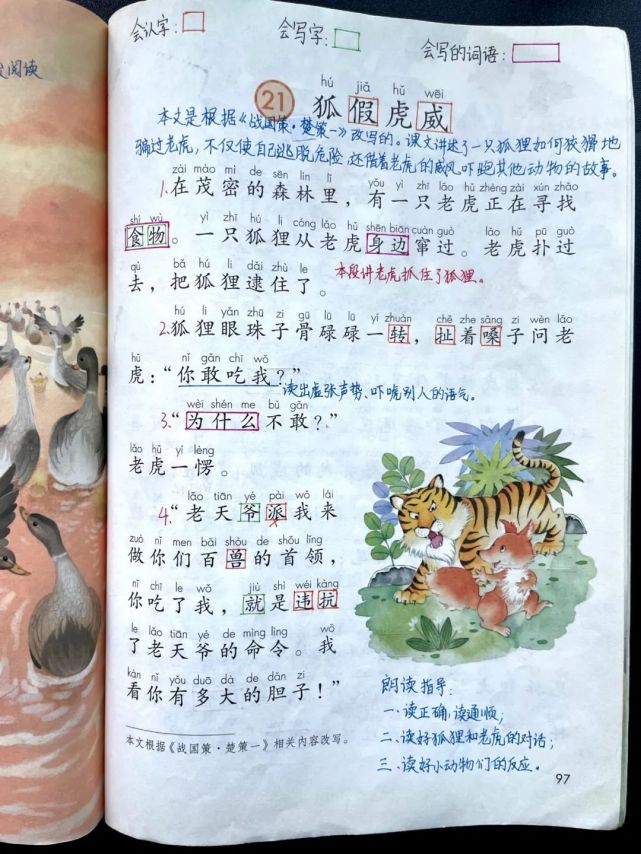 会认字：
会写字：
会写的词语：
阅读
hú jiǎ hǔ wēi
21 狐假虎威
本文是根据《战国策·楚策一》改写的。课文讲述了一只狐狸如何狡猾地
骗过老虎，不仅使自己逃脱危险，还借着老虎的威风吓跑其他动物的故事。
zài mào mì de sēn lín lǐ yǒu yì zhī lǎo hǔ zhèng zài xún zhǎo
1.在茂密的森林里，有一只老虎正在寻找
shí wù yì zhī hú li cóng lǎo hǔ shēn biān cuàn guò lǎo hǔ pū guò
食物。一只狐狸从老虎身边窜过。老虎扑过
qù bǎ hú li dǎi zhù le
去，把狐狸逮住了。
本段讲老虎抓住了狐狸。
hú li yǎn zhū zi gū lū lū yì zhuàn chě zhe sǎng zi wèn lǎo
2.狐狸眼珠子骨碌碌一转，扯着嗓子问老
hǔ nǐ gǎn chī wǒ
虎：“你敢吃我？”
读出虚张声势、吓唬别人的语气。
wèi shén me bù gǎn
3.“为什么不敢？”
lǎo hǔ yí lèng
老虎一愣。
lǎo tiān yé pài wǒ lái
4.“老天爷派我来
zuò nǐ men bǎi shòu de shǒu lǐng
做你们百兽的首领，
nǐ chī le wǒ jiù shì wéi kàng
你吃了我，就是违抗
le lǎo tiān yé de mìng lìng wǒ
了老天爷的命令。我
kàn nǐ yǒu duō dà de dǎn zi
看你有多大的胆子！”
朗读指导：
一、读正确，读通顺；
二、读好狐狸和老虎的对话；
三、读好小动物们的反应。
本文根据《战国策·楚策一》相关内容改写。
97